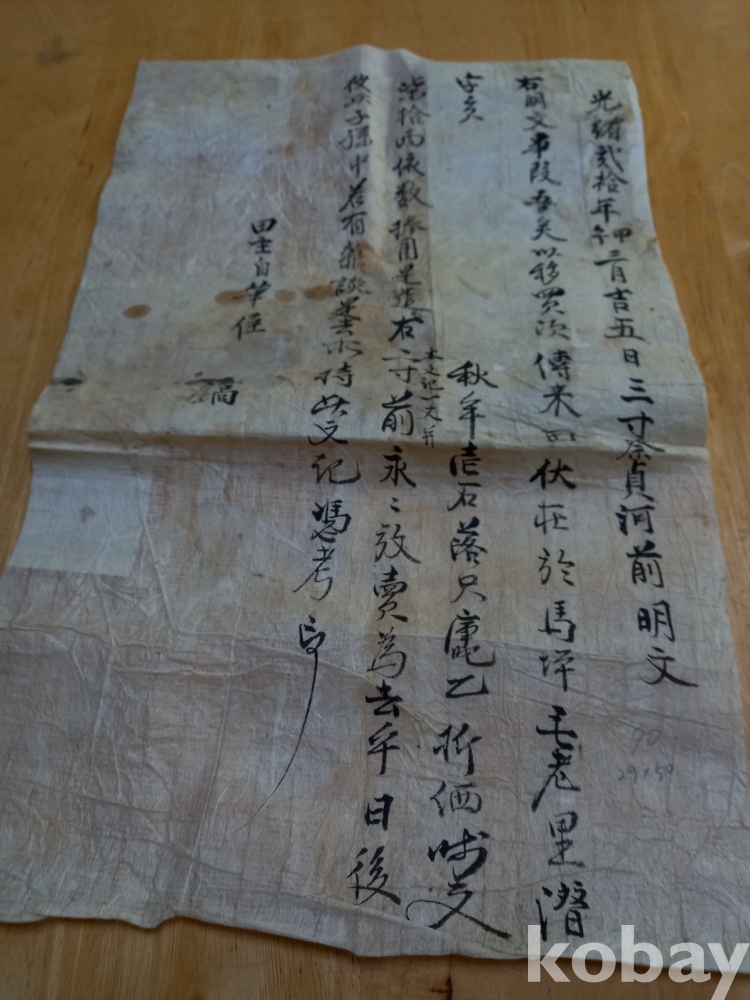 光緒貳拾年甲午二月吉五日三寸蔡貞河前明文
右明文事段吾矣以移買次傳來田伏在於馬坪毛老里潛
字矣 秋牟壹石落只 乙折価時文
柒拾兩依數捧用是遣右三寸前永〻放賣爲去乎日後
本文記一丈幷
彼此子孫中若有雜談是去 時此文記憑考
田主自筆任
鎬
70
29×59
kobay